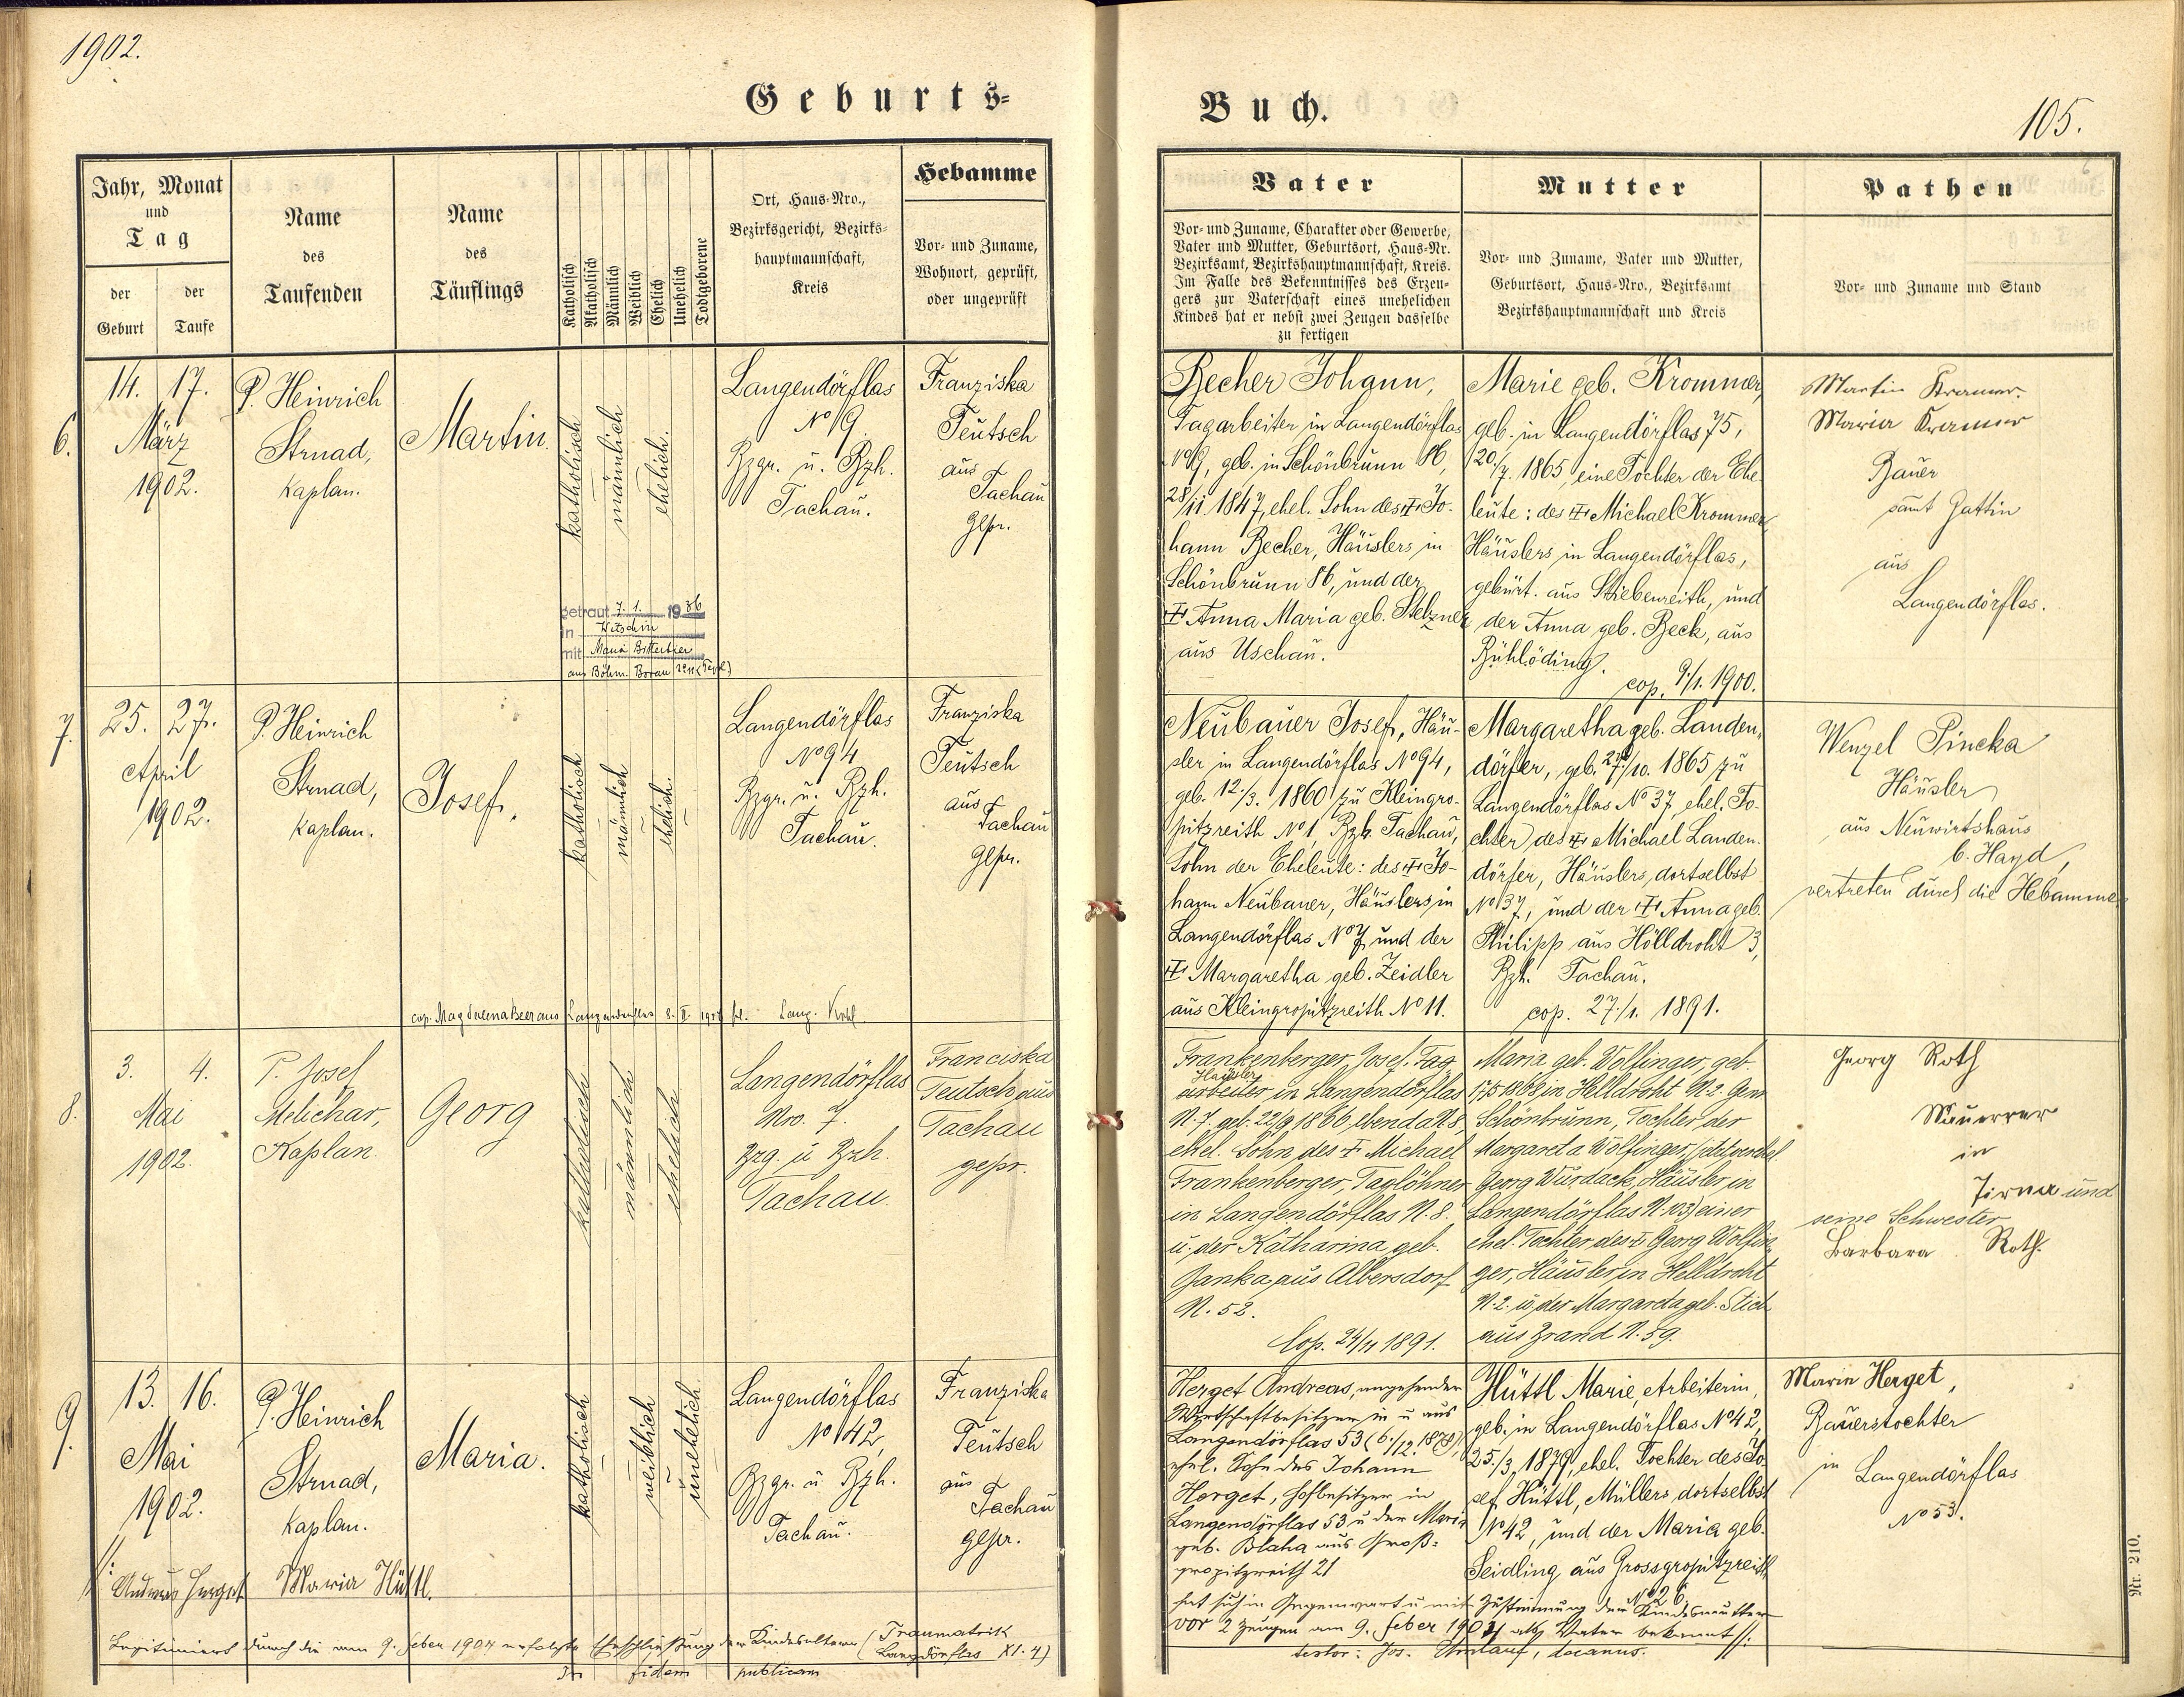 1902.
Geburts-
Jahr, Monat
und
Tag
der
Geburt
der
Taufe
Name
des
Taufenden
Name
des
Täuflings
Katholisch
Akatholisch
Männlich
Weiblich
Ehelich
Unehelich
Todtgeborene
Ort, Haus-Nro.,
Bezirksgericht, Bezirks-
hauptmannschaft,
Kreis
Hebamme
Vor- und Zuname,
Wohnort, geprüft,
oder ungeprüft
6.
14. 17.
März
1902.
P. Heinrich
Strnad,
Kaplan.
Martin.
katholisch
männlich
ehelich.
Langendörflas
No 19
Bzgr. u. Bzh.
Tachau.
Franziska
Teutsch
aus
Tachau
gepr.
getraut 7. 1. 1936
in Witschin
mit Maria Bitterbier
aus Böhm. Borau
7.
25. 27.
April
1902.
P. Heinrich
Strnad,
Kaplan.
Josef.
katholisch
männlich
ehelich.
Langendörflas
No 94
Bzgr. u. Bzh.
Tachau.
Franziska
Teutsch
aus
Tachau
gepr.
cop. Magdalena Beer aus Langendörflas 8. II.
8.
3. 4.
Mai
1902.
P. Josef
Melichar,
Kaplan.
Georg
katholisch
männlich
ehelich
Langendörflas
Nro. 7.
Bzg. u Bzh.
Tachau.
Franciska
Teutsch aus
Tachau
gepr.
9.
13. 16.
Mai
1902.
P. Heinrich
Strnad,
Kaplan.
Maria.
katholisch
weiblich
unehelich.
Langendörflas
No 42,
Bzgr. u Bzh.
Tachau.
Franziska
Teutsch
aus
Tachau
gepr.
Andreas Herget Maria Hüttl.
Legitimiert durch die am 9. Feber 1904 erfolgte Eheschließung der Kindeseltern (Traumatrik
Langdörflas XI. 4)
In fidem publicam
Buch.
105.
Vater
Vor- und Zuname, Charakter oder Gewerbe,
Vater und Mutter, Geburtsort, Haus-Nr.
Bezirksamt, Bezirkshauptmannschaft, Kreis.
Im Falle des Bekenntnisses des Erzeu-
gers zur Vaterschaft eines unehelichen
Kindes hat er nebst zwei Zeugen dasselbe
zu fertigen
Mutter
Vor- und Zuname, Vater und Mutter,
Geburtsort, Haus-Nro., Bezirksamt
Bezirkshauptmannschaft und Kreis
Pathen
Vor- und Zuname und Stand
Becher Johann,
Tagarbeiter in Langendörflas
No 19, geb. in Schönbrunn 86,
28/11 1847, ehel. Sohn des † Jo-
hann Becher, Häuslers in
Schönbrunn 86, und der
† Anna Maria geb. Stelzner
aus Uschau.
Marie geb. Krommer,
geb. in Langendörflas 75,
20./7. 1865, eine Tochter der Ehe-
leute: des † Michael Krommer
Häuslers in Langendörflas,
gebürt. aus Stiebenreith, und
der Anna geb. Beck, aus
Bühlöding.
cop. 9./1. 1900.
Martin Kramer.
Maria Kramer
Bauer
samt Gattin
aus
Langendörflas.
Neubauer Josef, Häu-
sler in Langendörflas No 94,
geb. 12./3. 1860 zu Kleingro-
pitzreith No 1, Bzh. Tachau,
Sohn der Eheleute: des † Jo-
hann Neubauer, Häuslers in
Langendörflas No 7 und der
† Margaretha geb. Zeidler
aus Kleingropitzreith No 11.
Margaretha geb. Landen-
dörfer, geb. 27/10. 1865 zu
Langendörflas No 37, ehel. To-
chter des † Michael Landen-
dörfer, Häuslers, dortselbst
No 37, und der † Anna geb.
Philipp aus Hölldroht 3,
Bzh. Tachau.
cop. 27./1. 1891.
Wenzel Pincka
Häusler
aus Neuwirtshaus
b. Hayd,
vertreten durch die Hebamme
Frankenberger Josef, Tag-
Häusler
arbeiter in Langendörflas
N. 7. geb. 22/9 1866 ebenda N. 8,
ehel. Sohn des † Michael
Frankenberger, Taglöhner
in Langendörflas N. 8.
u. der Katharina geb.
Janka aus Albersdorf
N. 52.
Cop. 24/11 1891.
Maria geb. Wolfinger, geb.
17/5 1868 in Helldroht N. 2. Gem
Schönbrunn, Tochter der
Margareta Wolfinger,
Georg Wurdack, Häusler in
Langendörflas N. 103) einer
ehel. Tochter des † Georg Wolfin-
ger, Häusler in Helldroht
N. 2. u. der Margareta geb. Stich
aus Brand N. 59.
Georg Roth
Mauerrer
in
Tirna und
seine Schwester
Barbara Roth.
Herget Andreas, angehender
Wirtschaftbesitzer in u aus
Langendörflas 53 (6./12. 1878),
ehel. Sohn des Johann
Herget, Hofbesitzer in
Langendörflas 53 u der Maria
geb. Blaha aus Groß-
gropitzreith 21
Hüttl Marie, Arbeiterin,
geb. in Langendörflas No 42,
25./3. 1879, ehel. Tochter des Jo-
sef Hüttl, Müllers dortselbst
No 42, und der Maria geb.
Seidling aus Grossgropitzreith
No 26.
Marie Herget,
Bauerstochter
in Langendörflas
No 53.
hat sich in Gegenwart u mit Zustimmung der Kindesmutter
vor 2 Zeugen am 9. Feber 1904 als Vater bekannt
testor: Jos. Umlauf, decanus.
Nr. 210.